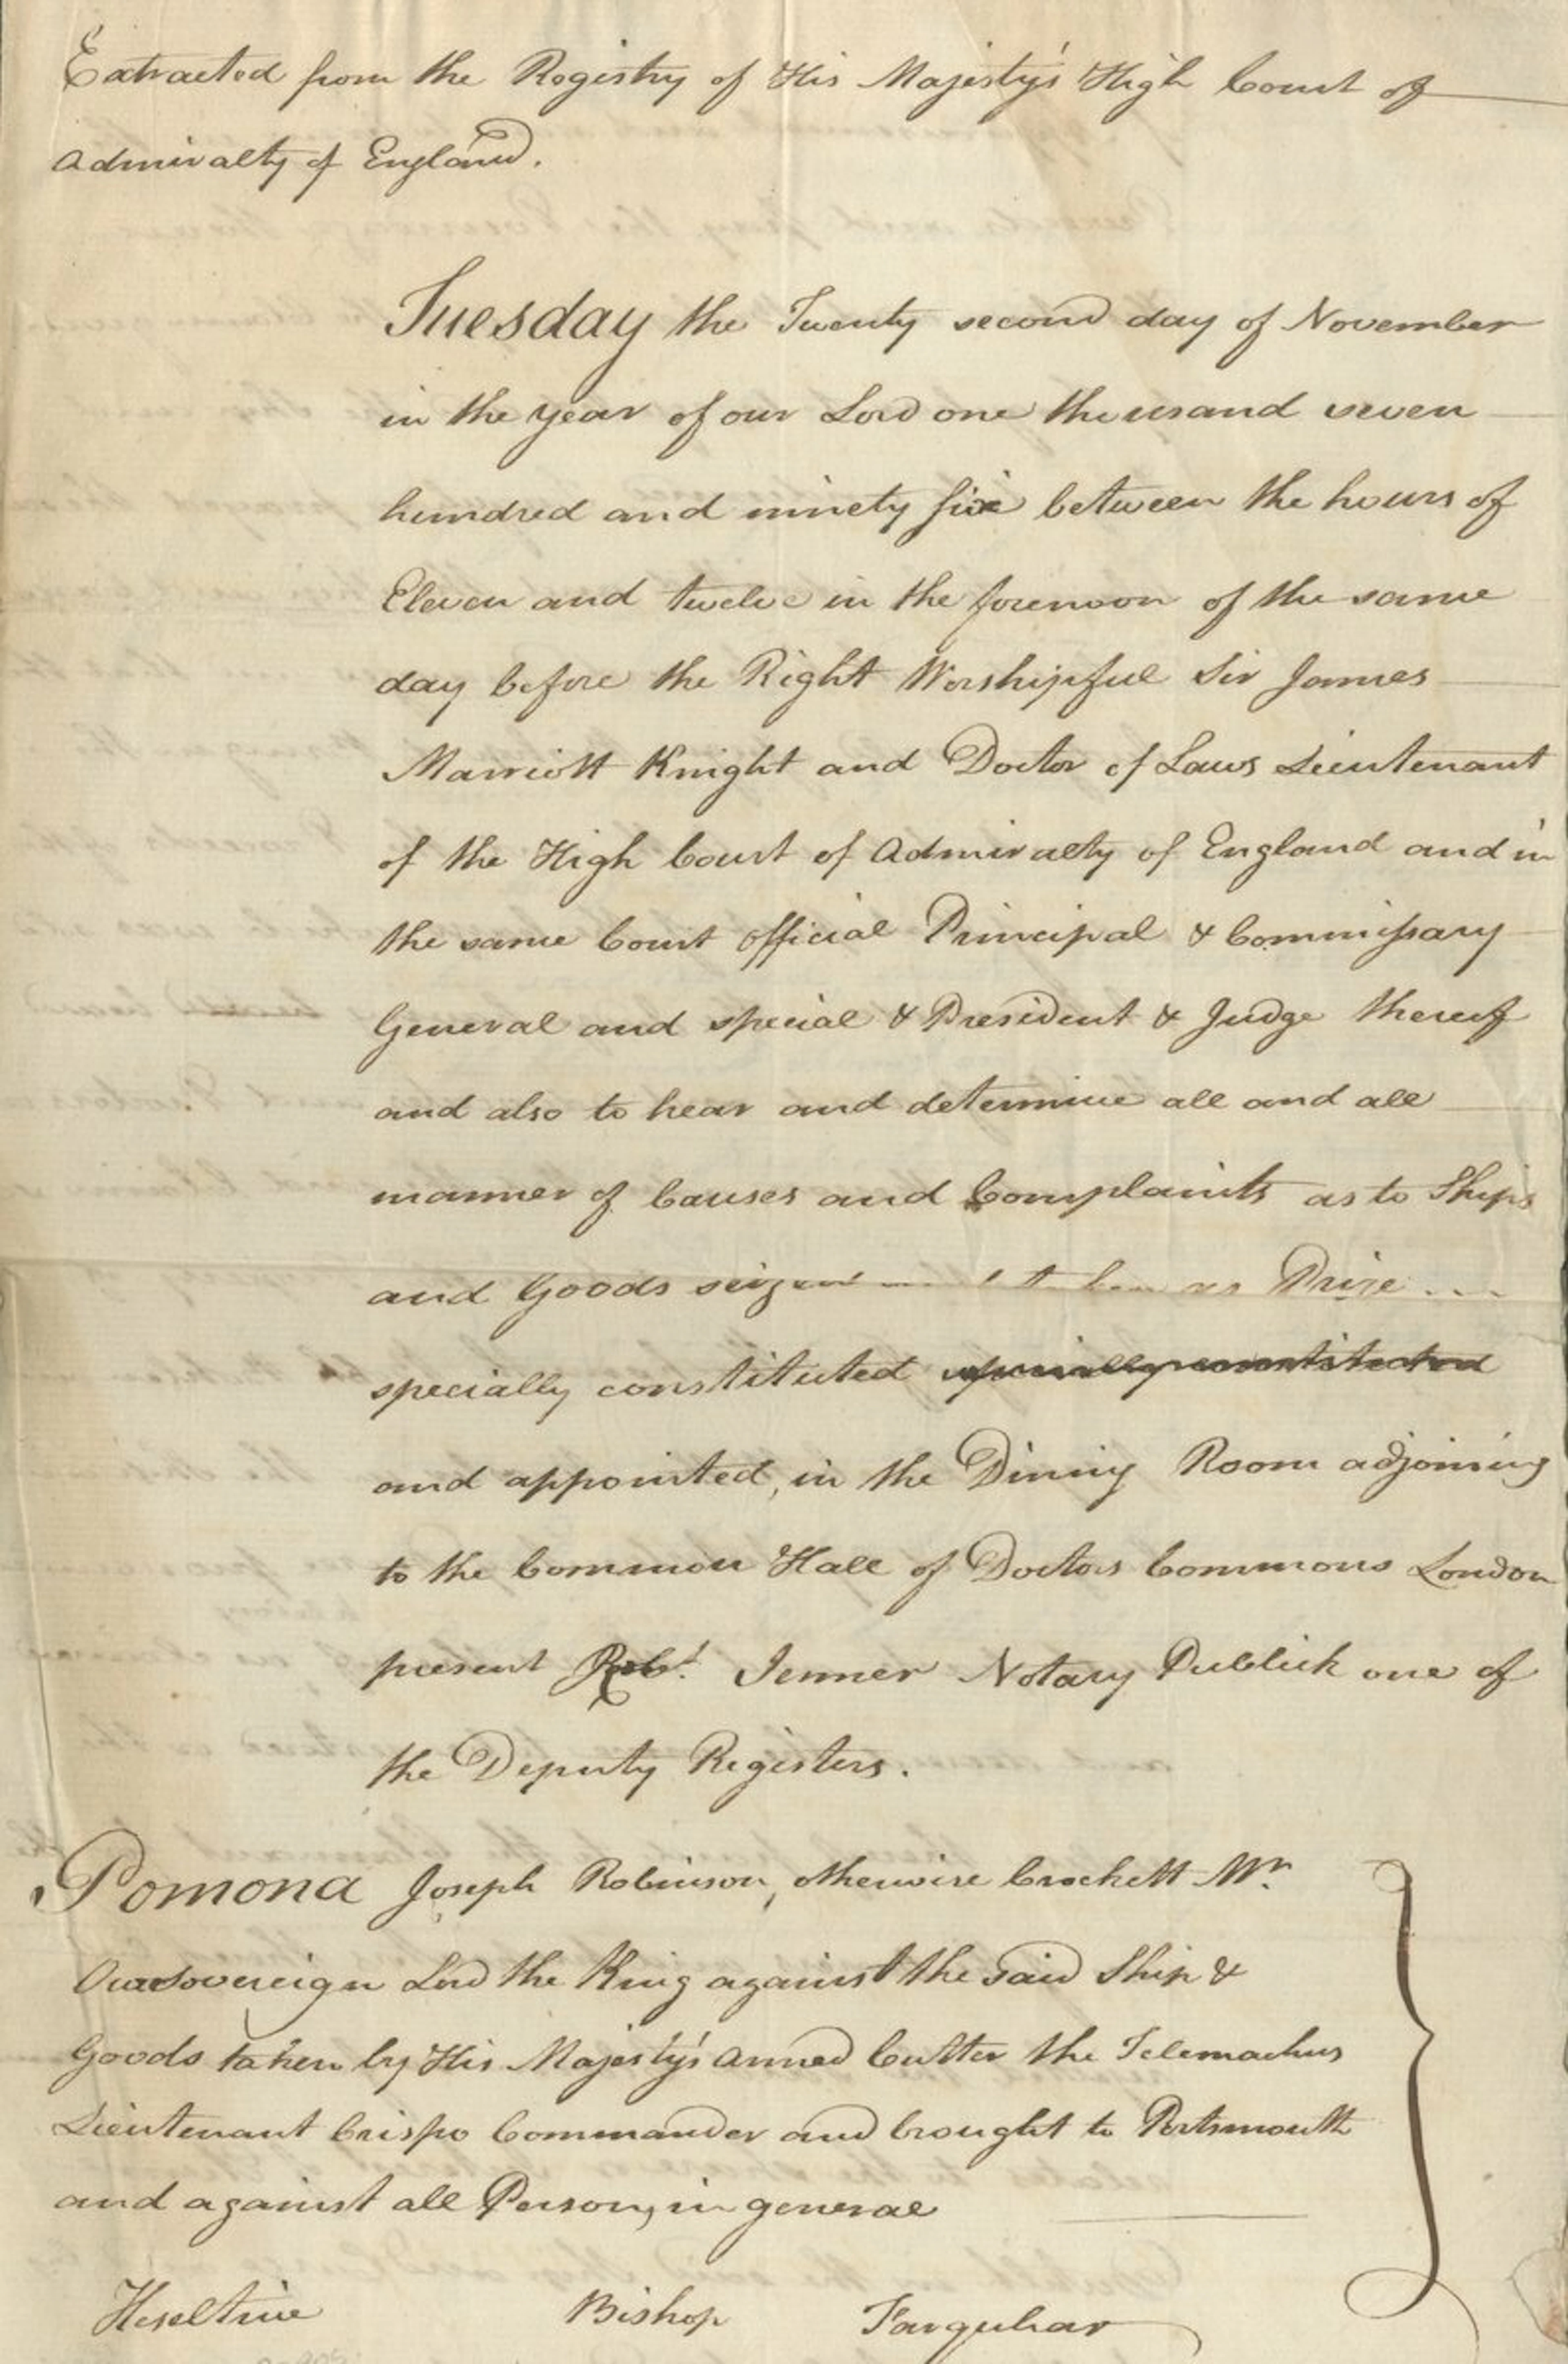 Extracted from the Registry of His Majesty's High Court of
Admiralty of England.
Tuesday the Twenty second day of November
in the year of our Lord one thousand seven
hundred and ninety six between the hours of
Eleven and twelve in the forenoon of the same
day before the Right Worshipful Sir James
Marriott Knight and Doctor of Laws Lieutenant
of the High Court of Admiralty of England and in
the same Court Official Principal & Commissary
General and special & President & Judge thereof
and also to hear and determine all and all
manner of Causes and Complaints as to Ships
and Goods seized taken as Prize
specially constituted specially constituted
and appointed, in the Dining Room adjoining
to the Common Hall of Doctors Commons London
present Robt. Jenner Notary Publick one of
the Deputy Registers.
Pomona Joseph Robinson, otherwise Crockett Mr.
Our Sovereign Lord the King against the said Ship &
Goods taken by His Majesty's Armed Cutter the Telemachus
Lieutenant Crispo Commander and brought to Portsmouth
and against all Persons in general
Heseltine Bishop Farquhar